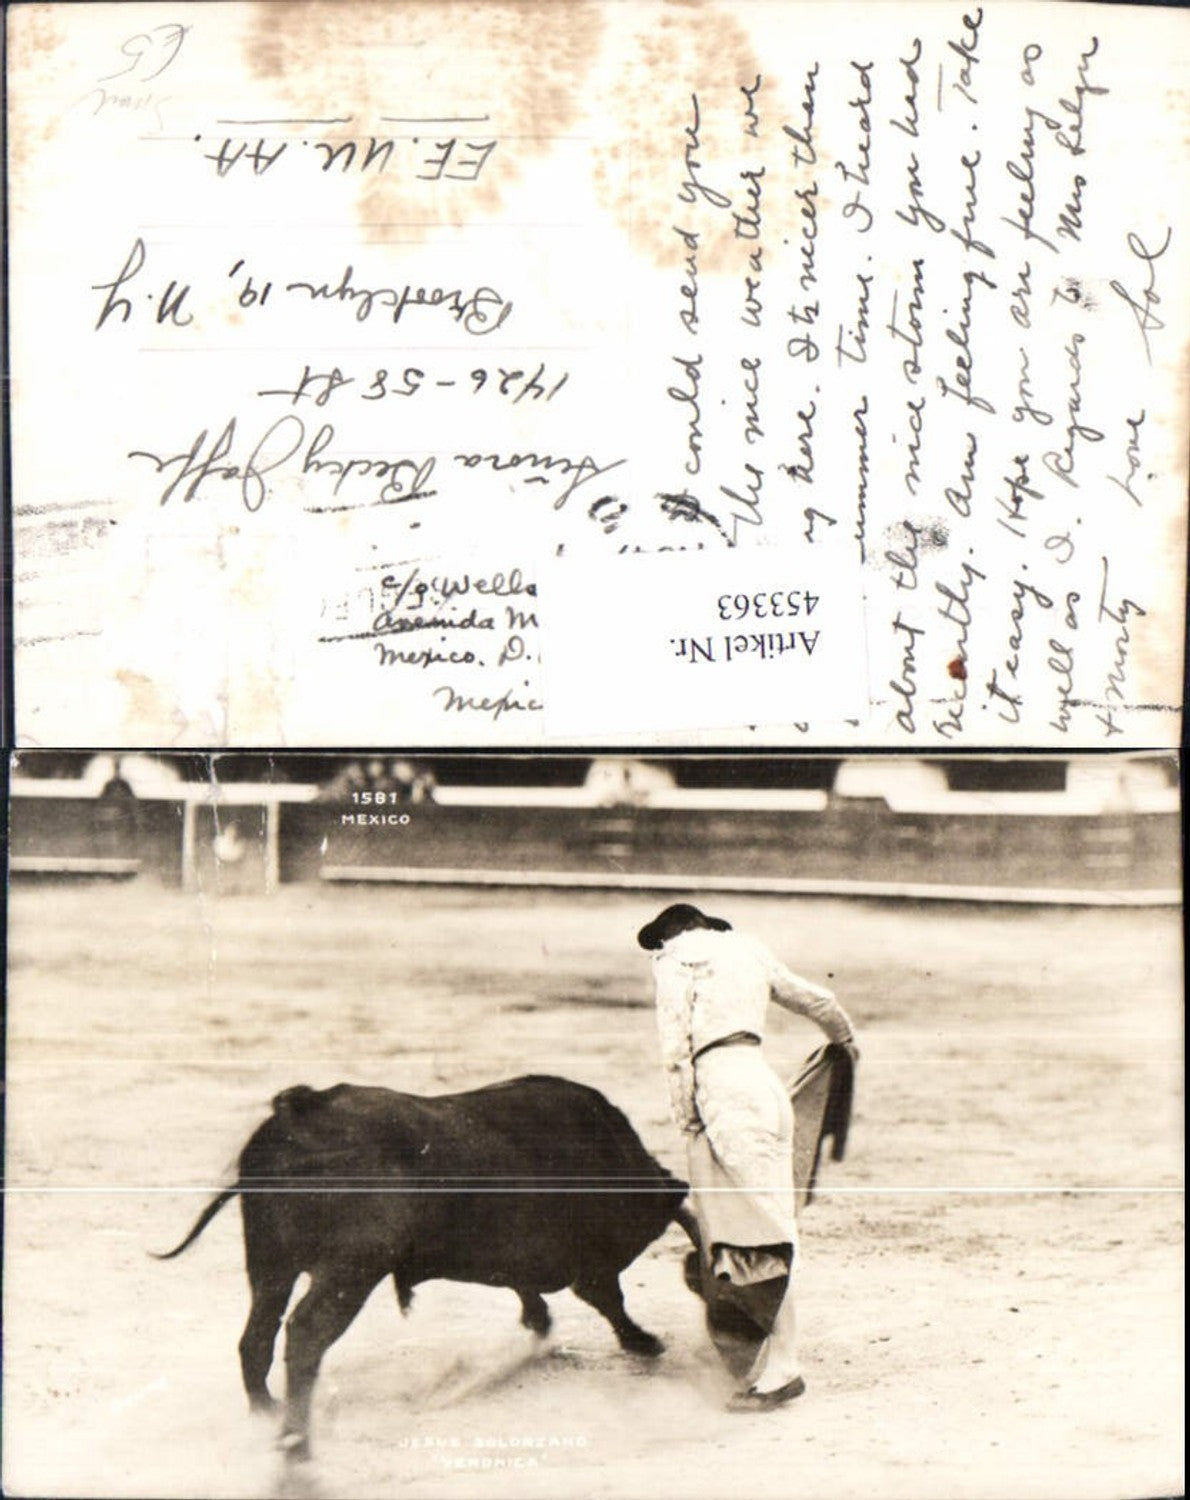 I could send you
the nice weather we
ng here. It's nicer than
ummer time. I heard
about the nice storm you had
recently. Am feeling fine. Take
it easy. Hope you are feeling as
well as I. Regards to Mrs
& Morty
Love
Sol
Señora Becky Jaffe
1426-58 St
Brooklyn 19, N.Y
EE. UU. AA.
£5
c/o Wells
Avenida M
Mexico. D.
Mexic
Artikel Nr.
453363
1581
MEXICO
JESUS SOLORZANO
"VERONICA"